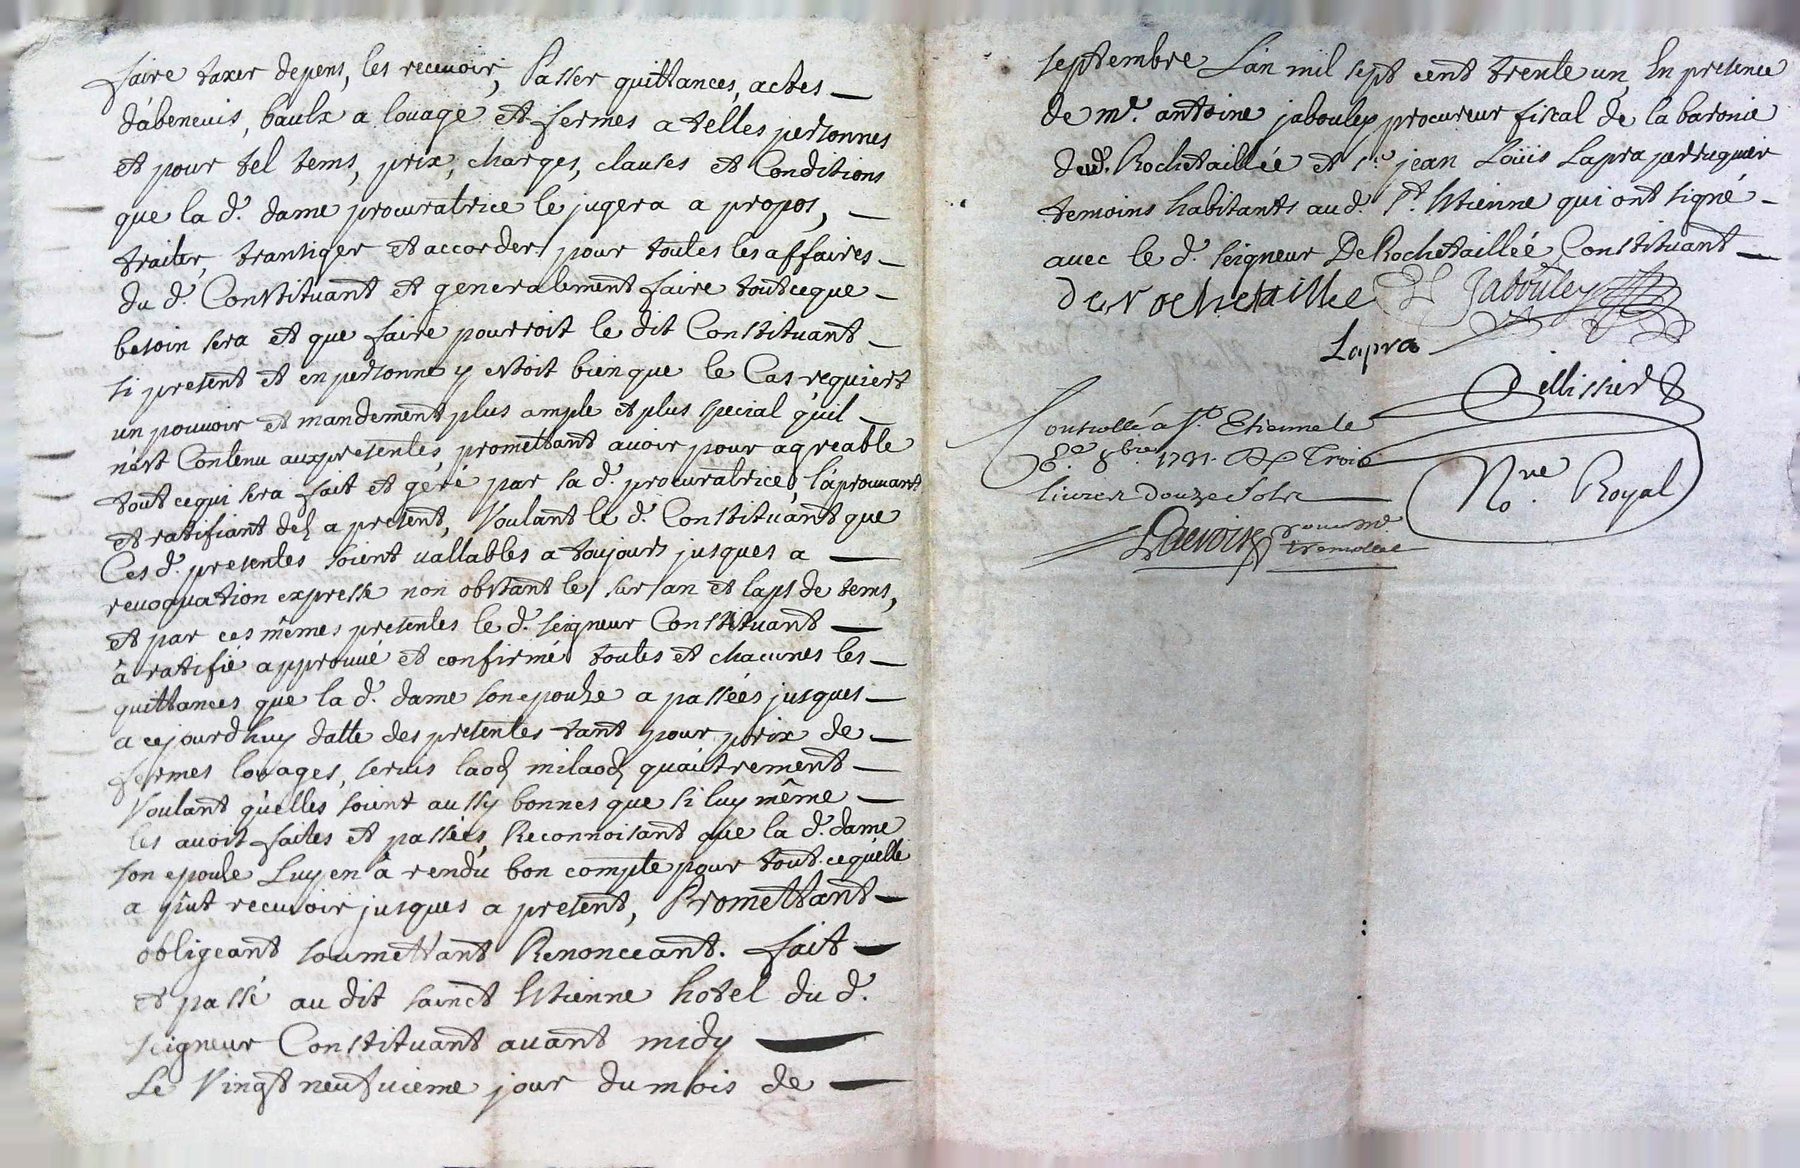 faire taxer depens, les recevoir, Passer quittances, actes
d'abenevis, baulx a louage et fermes a telles personnes
et pour tel tems, prix, charges, clauses et Conditions
que la d. dame procuratrice le jugera a propos,
traiter, transiger et accorder pour toutes les affaires
du d. Constituant et generalement faire tout ce que
besoin sera et que faire pourroit le dit Constituant
si present et en personne y estoit bien que le Cas requiert
un pouvoir et mandement plus ample et plus special qu'il
n'est Contenu aux presentes, promettant avoir pour agreable
tout ce qui sera fait et géré par la d. procuratrice, l'aprouvant
et ratifiant des a present, Voulant le d. Constituant que
Ces d. presentes soient vallables a toujours jusques a
revoquation expresse non obstant le sur an et laps de tems,
et par ces mêmes presentes le d. seigneur Constituant
à ratifié approuvé et confirmé toutes et chacunes les
quittances que la d. dame son epouse a passées jusques
a cejourdhuy datte des presentes tant pour prix de
fermes louages, servis laods milaods qu'autrement
Voulant qu'elles soient aussy bonnes que si luy même
les avoit faites et passées, Reconnoisant que la d. dame
son epouse Luy en à rendu bon compte pour tout ce qu'elle
a put recevoir jusques a present, Promettant
obligeant soumettant Renonceant. fait
et passé au dit sainct Estienne hotel du d.
seigneur Constituant avant midy
Le Vingt neufvieme jour du mois de
septembre L'an mil sept cent trente un, En presence
de me. antoine jabouley procureur fiscal de la baronie
dud. Rochetaillée et sr. jean Loüis Lapra perruquier
temoins habitants aud. St. Estienne qui ont signé
avec le d. seigneur De Rochetaillée Constituant
de rochetaillee Jabouley
Lapra
Pellissier
Controllé à St. Etienne le
8e. 8bre 1731. Trois
livres Douze sols
Nre. Royal